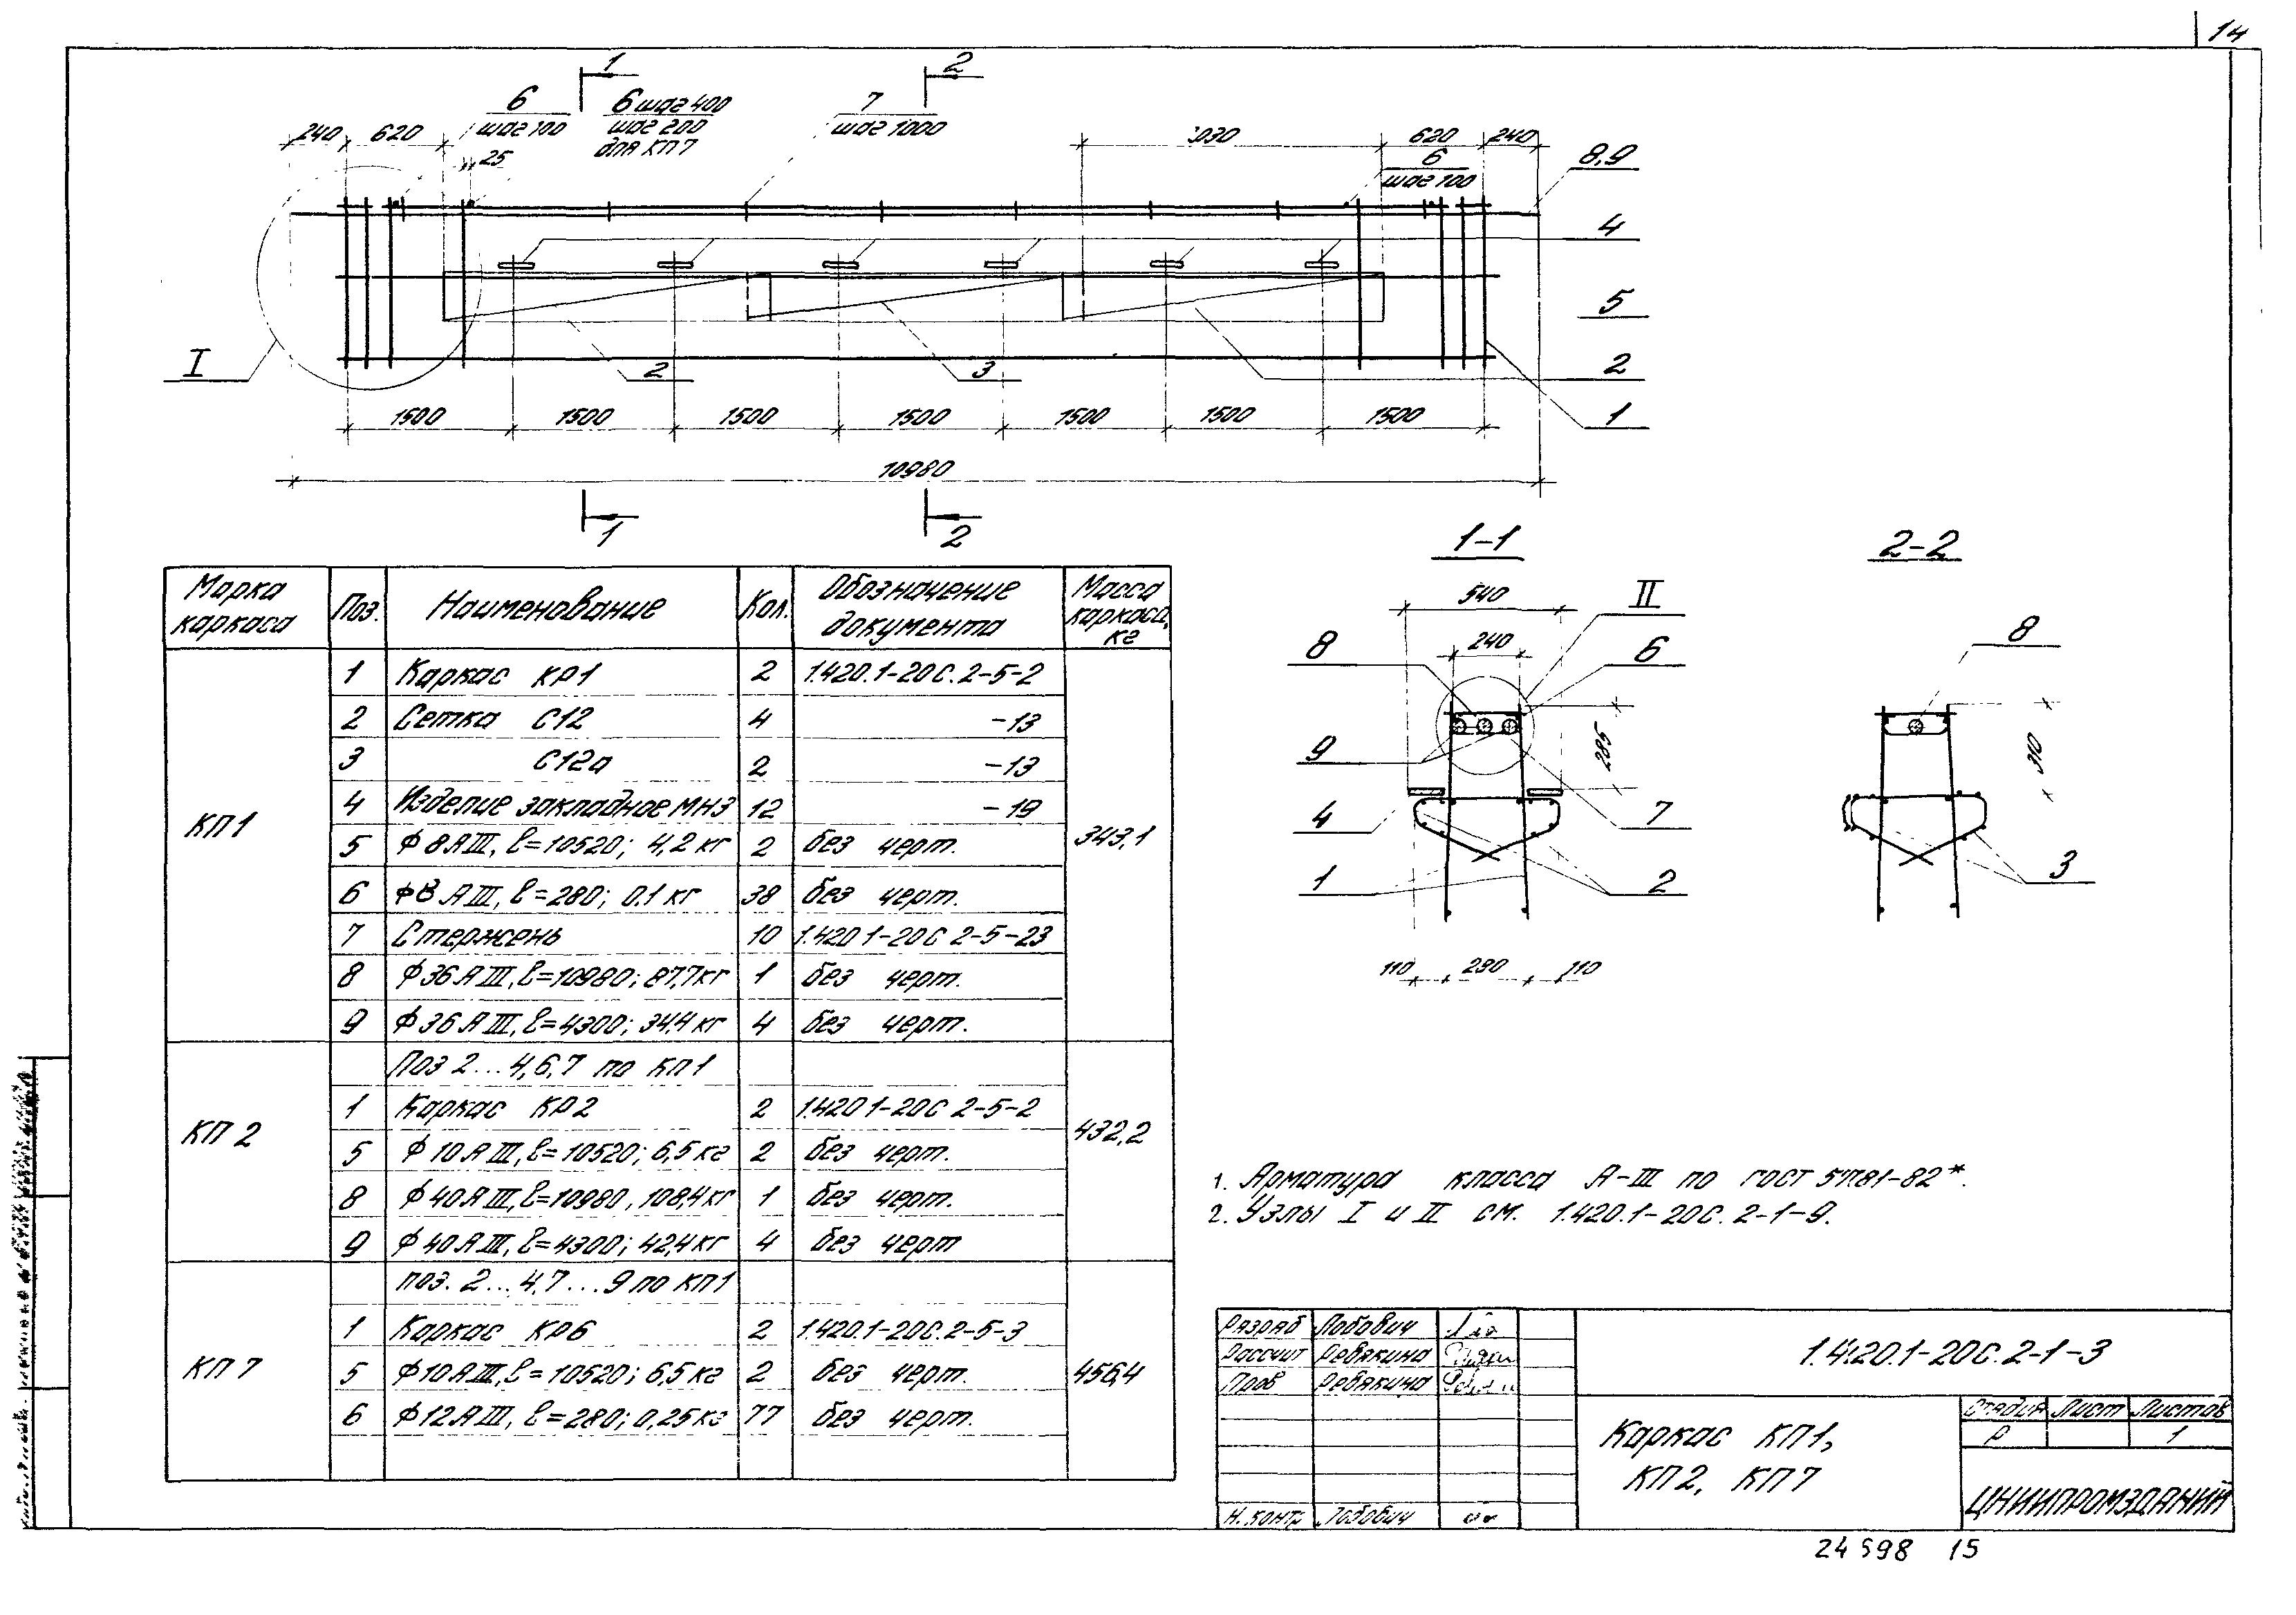 14
1
2
6
шаг 100
6 шаг 400
шаг 200
для КП7
7
шаг 1000
240
620
25
030
620
240
6
шаг 100
8,9
4
5
2
1
I
2
3
1500
1500
1500
1500
1500
1500
1500
10980
1
2
1-1
2-2
540
II
240
8
6
285
9
4
7
1
2
110
280
110
8
310
3
Марка каркаса
Поз.
Наименование
Кол.
Обозначение документа
Масса каркаса, кг
КП1
1 Каркас КР1 2 1.420.1-20С.2-5-2
2 Сетка С12 4 -13
3 С12а 2 -13
4 Изделие закладное МН3 12 -19
5 Ф 8АIII, l=10520; 4,2 кг 2 без черт.
343,1
6 Ф8 АIII, l=280; 0.1 кг 38 без черт.
7 Стержень 10 1.420 1-20С 2-5-23
8 Ф36АIII, l=10980; 87,7кг 1 без черт.
9 Ф36АIII, l=4300; 34,4 кг 4 без черт.
Поз 2...4,6,7 по КП1
КП 2
1 Каркас КР2 2 1.420 1-20С 2-5-2
432,2
5 Ф 10АIII, l=10520; 6,5кг 2 без черт.
8 Ф 40АIII, l=10980, 108,4кг 1 без черт.
9 Ф 40АIII, l=4300; 42,4кг 4 без черт
поз. 2...4,7...9 по КП1
КП 7
1 Каркас КР6 2 1.420.1-20С.2-5-3
5 Ф10АIII, l=10520; 6,5кг 2 без черт.
456,4
6 Ф12АIII, l=280; 0,25кг 77 без черт.
1. Арматура класса А-III по ГОСТ 5781-82*.
2. Узлы I и II см. 1.420.1-20С. 2-1-9.
Разраб Лобович
Рассчит Ревякина
Пров Ревякина
Н.контр Лобович
1.420.1-20С.2-1-3
Каркас КП1,
КП2, КП7
Стадия Лист Листов
Р 1
ЦНИИПРОМЗДАНИЙ
24598 15